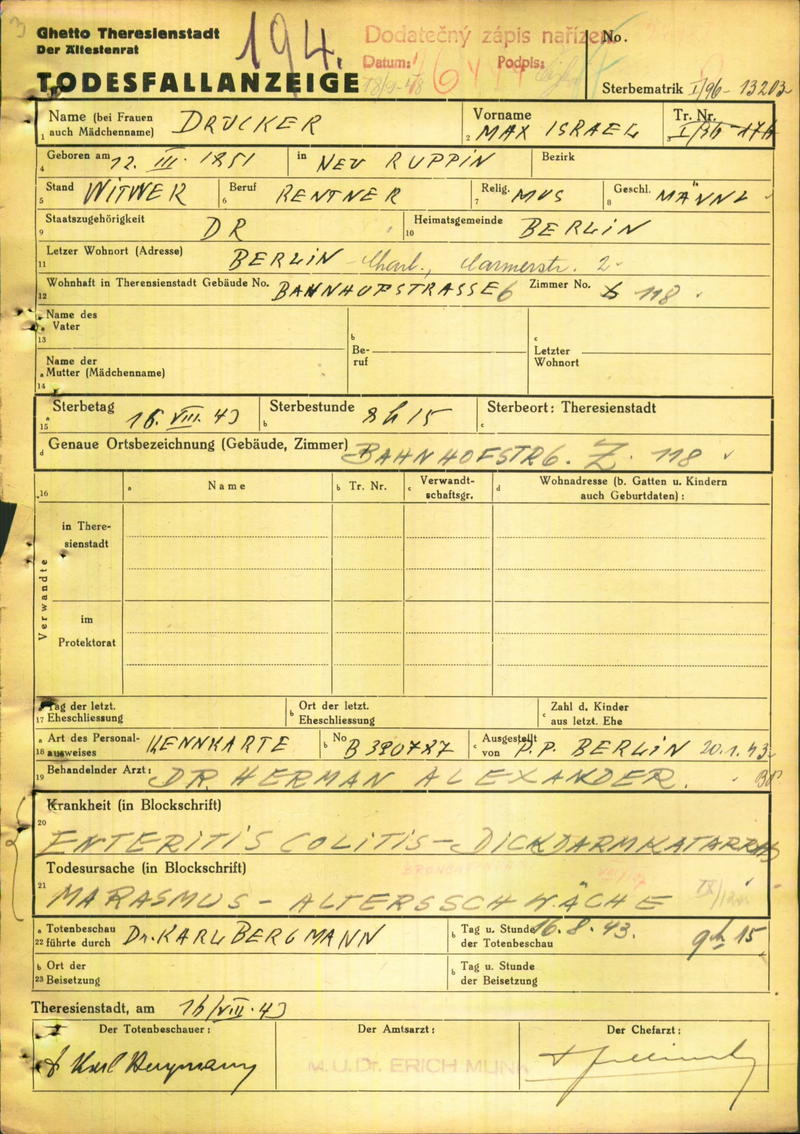 Ghetto Theresienstadt
Der Ältestenrat
194.
Dodatečný zápis nařízen
Datum:
Podpis:
No.
TODESFALLANZEIGE
Sterbematrik I/96 - 13203
Name (bei Frauen auch Mädchenname) DRUCKER
1
Vorname MAX ISRAEL
2
Tr. Nr.
Geboren am 12. III. 1851 in NEU RUPPIN Bezirk
4
Stand WITWER Beruf RENTNER Relig. MOS Geschl. MÄNNL
5 6 7 8
Staatszugehörigkeit DR Heimatsgemeinde BERLIN
9 10
Letzer Wohnort (Adresse) BERLIN - Charl., 2
11
Wohnhaft in Therensienstadt Gebäude No. BAHNHOFSTRASSE 6 Zimmer No. 118
12
Name des Vater
13
b Beruf
c Letzter Wohnort
Name der
a Mutter (Mädchenname)
14
Sterbetag 16. VIII. 43 Sterbestunde 8h 15 Sterbeort: Theresienstadt
15 a b c
d Genaue Ortsbezeichnung (Gebäude, Zimmer) BAHNHOFSTR 6. Z. 118
16 a Name b Tr. Nr. c Verwandtschaftsgr. d Wohnadresse (b. Gatten u. Kindern auch Geburtdaten) :
Verwandte
in Theresienstadt
im Protektorat
a Tag der letzt.
17 Eheschliessung
b Ort der letzt. Eheschliessung
c Zahl d. Kinder aus letzt. Ehe
a Art des Personal-
18 ausweises KENNKARTE
b No B 390787
c Ausgestellt von P.P. BERLIN 20.1.43
19 Behandelnder Arzt: DR. HERMAN ALEXANDER.
Krankheit (in Blockschrift)
20
ENTERITIS COLITIS - DICKDARMKATARRH
Todesursache (in Blockschrift)
21
MARASMUS - ALTERSSCHWÄCHE
a Totenbeschau
22 führte durch Dr. KARL BERGMANN
b Tag u. Stunde der Totenbeschau 16. 8. 43. 9h 15
b Ort der
23 Beisetzung
b Tag u. Stunde der Beisetzung
Theresienstadt, am 16/VIII. 43
Der Totenbeschauer:
Der Amtsarzt:
Der Chefarzt:
Dr Karl Bergmann
M.U.Dr. ERICH MUNK